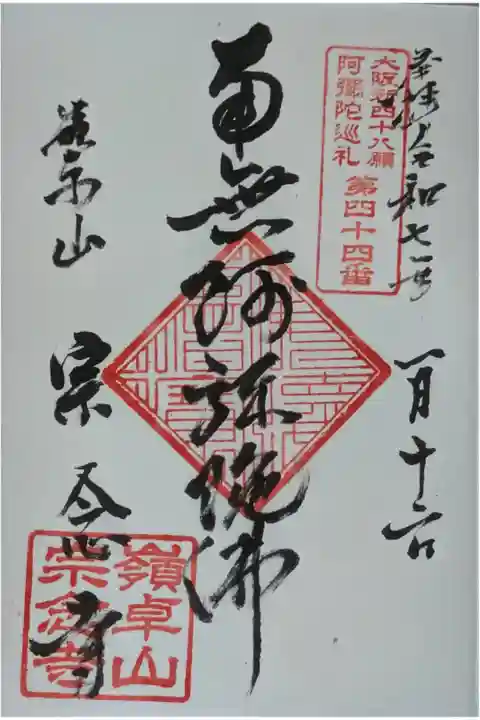 奉拝 令和七年 一月十六日
大阪新四十八願
阿彌陀巡礼 第四十四番
南無阿弥陀佛
宗念寺
嶺卓山
宗念寺